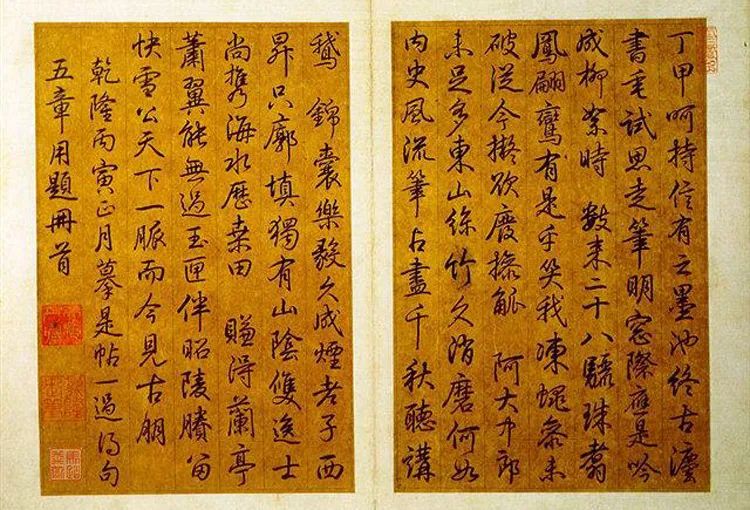 丁甲呵持信有之墨池終古
試思走筆明窗際應是吟
成柳絮時 數來二十八驪珠翥
鳳翩鸞有是乎笑我凍蠅參未
破從今擬欲廢操觚 阿大中郎
未足多東山絲竹久消磨何如
內史風流筆占盡千秋聽講
鵝 錦囊樂毅久成煙老子西
昇只廓填獨有山陰雙逸士
尚攜海水歷桑田 賺得蘭亭
蕭翼能無過玉匣伴昭陵賸留
快雪公天下一脈而今見古朋
乾隆丙寅正月摹是帖一過得句
五章用題冊首